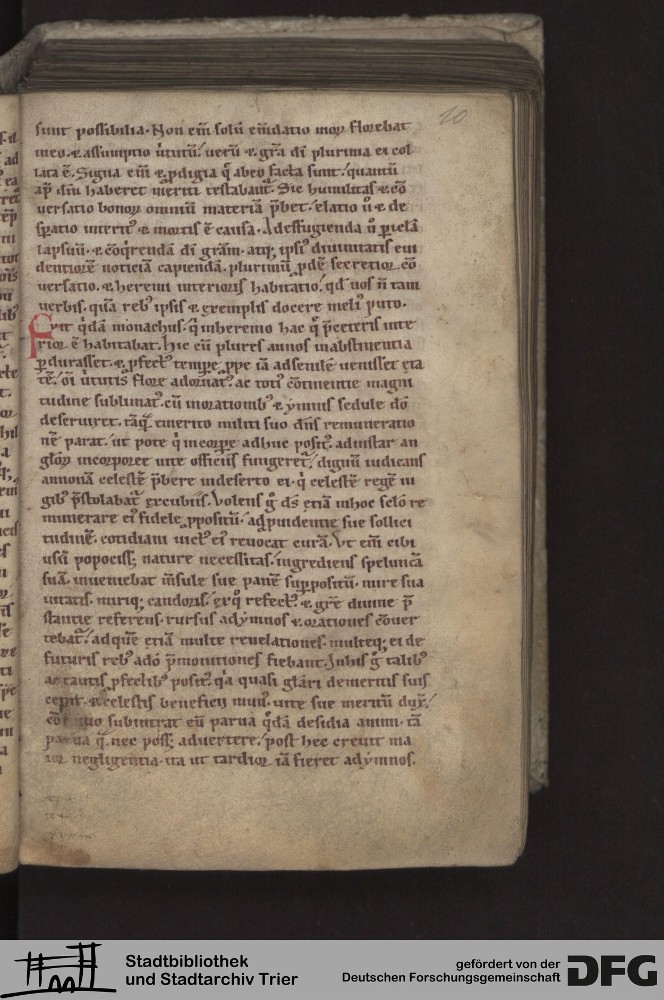 20
sunt possibilia. Non eni̅ solu̅ em̅datio moꝝ florebat
in eo. & assumptio u̓tutu̅/ ueru̅ & gr̅a di̅ plurima ei col
lata e̅. Signa eni̅ & ꝓdigia q̓ ab eo facta sunt/ quantu̅
ap̅ dm̅ haberet meriti testabant᷑. Sic humilitas & co̅
uersatio bonoꝝ omniu̅ materia̅ p̅bet. elatio u̓ & de
sꝑatio interit᷒ & mortis e̅ causa. Ad effugienda u̓ ꝑicl̅a
lapsuu̅. & co̅q̓renda̅ di̅ gr̅am. atq; ipsi᷒ diuinitatis eui
dentiore̅ noticia̅ capienda̅. plurimu̅ ꝓde̅ secretior co̅
uersatio. & heremi interioris habitatio. qd̓ uos n̅ tam
uerbis. qua̅ reb᷒ ipsis & exemplis docere meli᷒ puto.
Fuit q̓da̅ monachus. q̓ in heremo hac q̓ p̅ ceteris inte
rior e̅ habitabat. Hic cu̅ plures annos in abstinentia
ꝑdurasset. & ꝑfect᷒ tempe ꝓpe ia̅ ad senile̅ uenisset eta
te̅/ oi̅ u̓tutis flore adornat᷒. ac toti᷒ co̅tinentie magni
tudine sublimat᷒. cu̅ in orationib᷒ & ymnis sedule do̅
deseruiret. ta̅q̓ emerito militi suo dn̅s remuneratio
ne̅ parat. ut pote q̓ in corꝑe adhuc posit᷒. ad instar an
gl̅oꝝ incorporee uite officiis fungeret᷑/ dignu̅ iudicans
annona̅ celeste̅ p̅bere in deserto ei. q̓ celeste̅ rege̅ iu
gib᷒ p̅stolabat᷑ excubiis. Volens g̓ ds̅ etia̅ in hoc sclo̅ re
munerare ei᷒ fidele ꝓpositu̅. ad ꝓuidentie sue sollici
tudine̅. cotidiani uict᷒ ei᷒ reuocat cura̅. Vt eni̅ cibi
usu̅ poposciss; nature necessitas. ingrediens spelunca̅
sua̅. inueniebat m̅sule sue pane̅ suppositu̅. mire sua
uitatis. miriq; candoris. ex q̓ refect᷒. & gr̅e diuine p̅
stantie referens. rursus ad ymnos & orationes co̅uer
tebat᷑/ ad que̅ etia̅ multe reuelationes. multeq; ei de
futuris reb᷒ a do̅ p̅monitiones fiebant. In his g̓ talib᷒
ac tantis ꝓfectib᷒ posit᷒ q̓a quasi gl̅ari de meritis suis
cepit. & celestis beneficii mun᷒. uite sue meritu̅ dux̅/
co̅tinuo subintrat eu̅ parua q̓da̅ desidia animi. ta̅
parua q̓ nec poss; aduertere/ post hec creuit ma
ior negligentia. ita ut tardior ia̅ fieret ad ymnos.
Stadtbibliothek
und Stadtarchiv Trier
gefördert von der
Deutschen Forschungsgemeinschaft
DFG